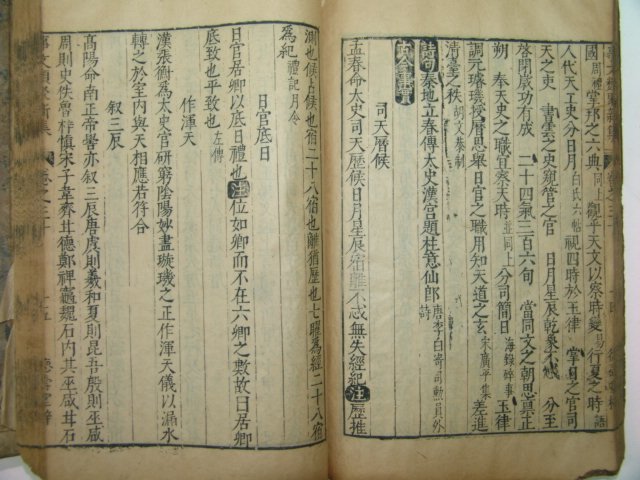 國 周禮 掌邦之六典 同上 觀乎天文以察時變 易 行夏之時 語
人代天工史分日月 白氏六帖 視四時於玉律 掌日之官司
天之吏 書雲之史 觀管之官 日月星辰乾象不忒 分至
啓閉成功有成 二十四氣三百六旬 當同文之朝思真正
朔 奉天史之職宜察天時 並同上 分司簡日 海錄碎事 玉律
調元璿璣授曆思舉日官之職用知天道之玄 宋廣平集 差進
清臺之秩 胡文恭制
詩句 秦地立春傳太史漢宮題柱憶仙郎 唐李白寄司勳員外詩
古今事實
司天曆候
孟春命太史司天歷候日月星辰宿離不忒無失經紀 注 歷推
測也候占候也宿二十八宿也離猶歷也七曜為經二十八宿
為紀 禮記月令
日官底日
日官居卿以底日禮也 注 位如卿而不在六卿之數故曰居卿
底致也平致也 左傳
作渾天
漢張衡為太史官研窮陰陽妙盡璇璣之正作渾天儀以漏水
轉之於室內與天相應若符合
叙三辰
高陽命南正帝嚳亦叙三辰唐虞則羲和夏則昆吾殷則巫咸
周則史佚魯梓慎宋子韋齊甘德鄭裨竈魏石內其巫咸甘石